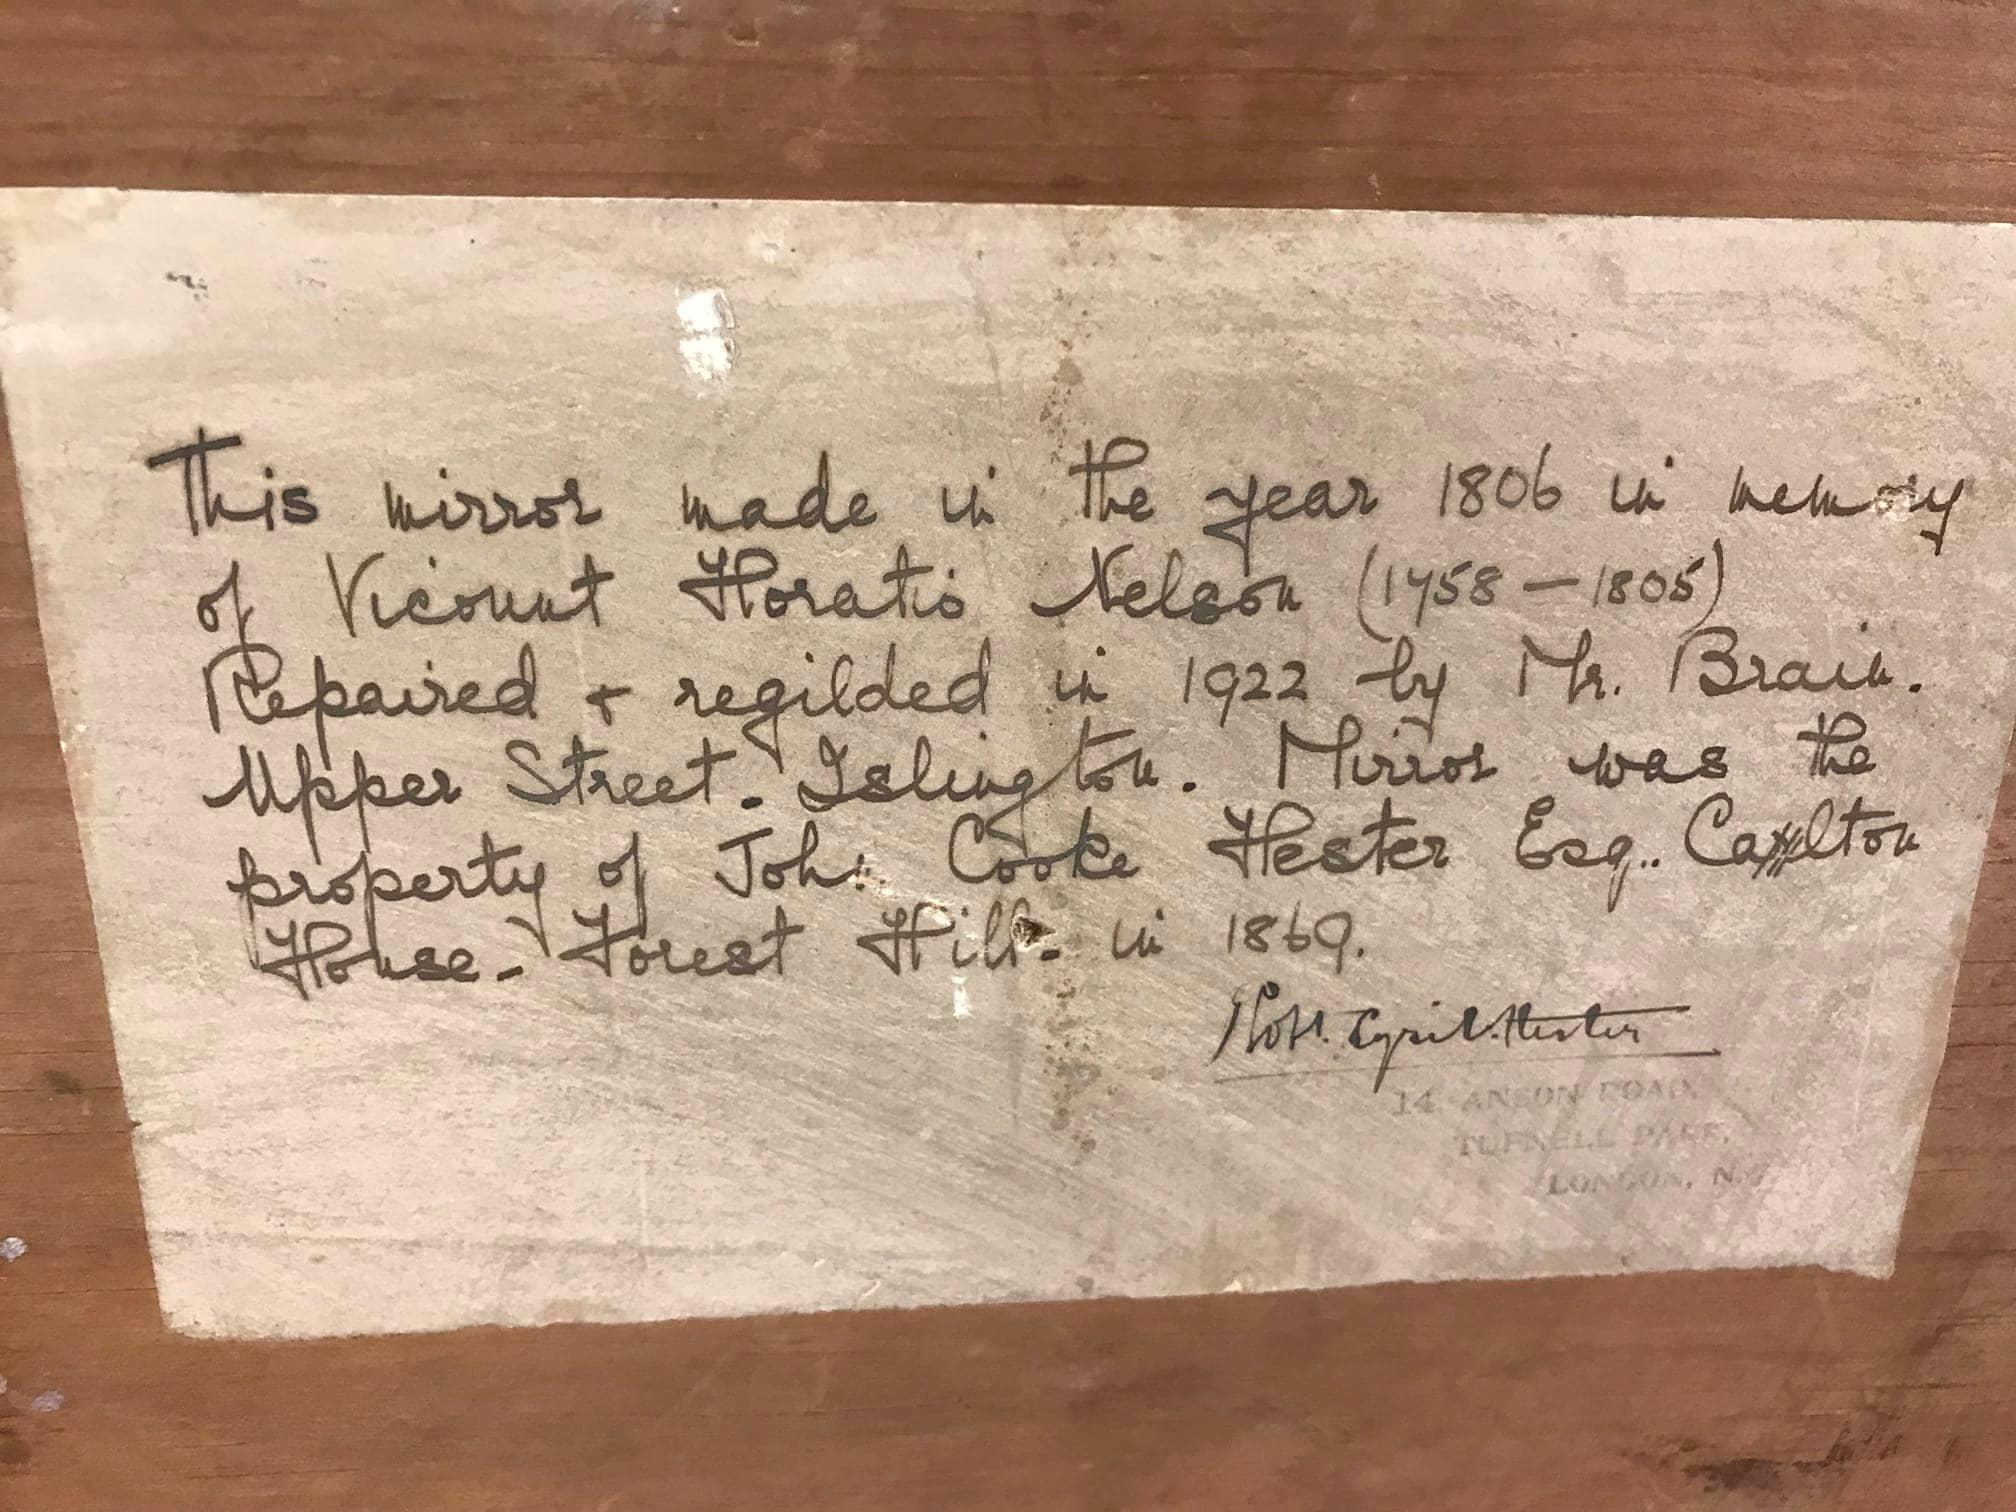 This mirror made in the year 1806 in memory
of Vicount Horatio Nelson (1758 – 1805)
Repaired + regilded in 1922 by Mr. Brain.
Upper Street. Islington. Mirror was the
property of John Cooke Hester Esq.. Carlton
House - Forest Hill. in 1869.
Robt. Cyril Hester
14 ANSON ROAD,
TUFNELL PARK,
LONDON, N.